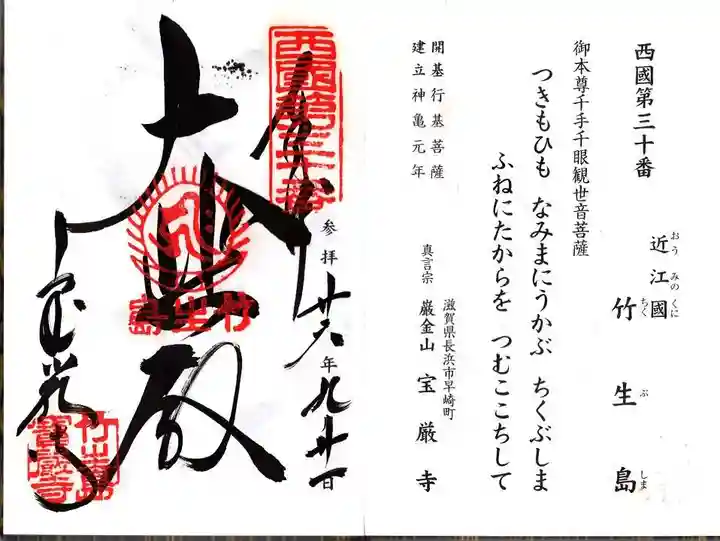 西國第三十番
近江國 竹生島
おうみのくに ちくぶしま
御本尊千手千眼観世音菩薩
つきもひも なみまにうかぶ ちくぶしま
ふねにたからを つむここちして
開基行基菩薩
建立神亀元年
滋賀県長浜市早崎町
真言宗 巌金山 宝厳寺
西國第三十番
参拝 廿六年九月廿一日
大悲殿
竹生島
宝厳寺
竹生島
寶嚴寺